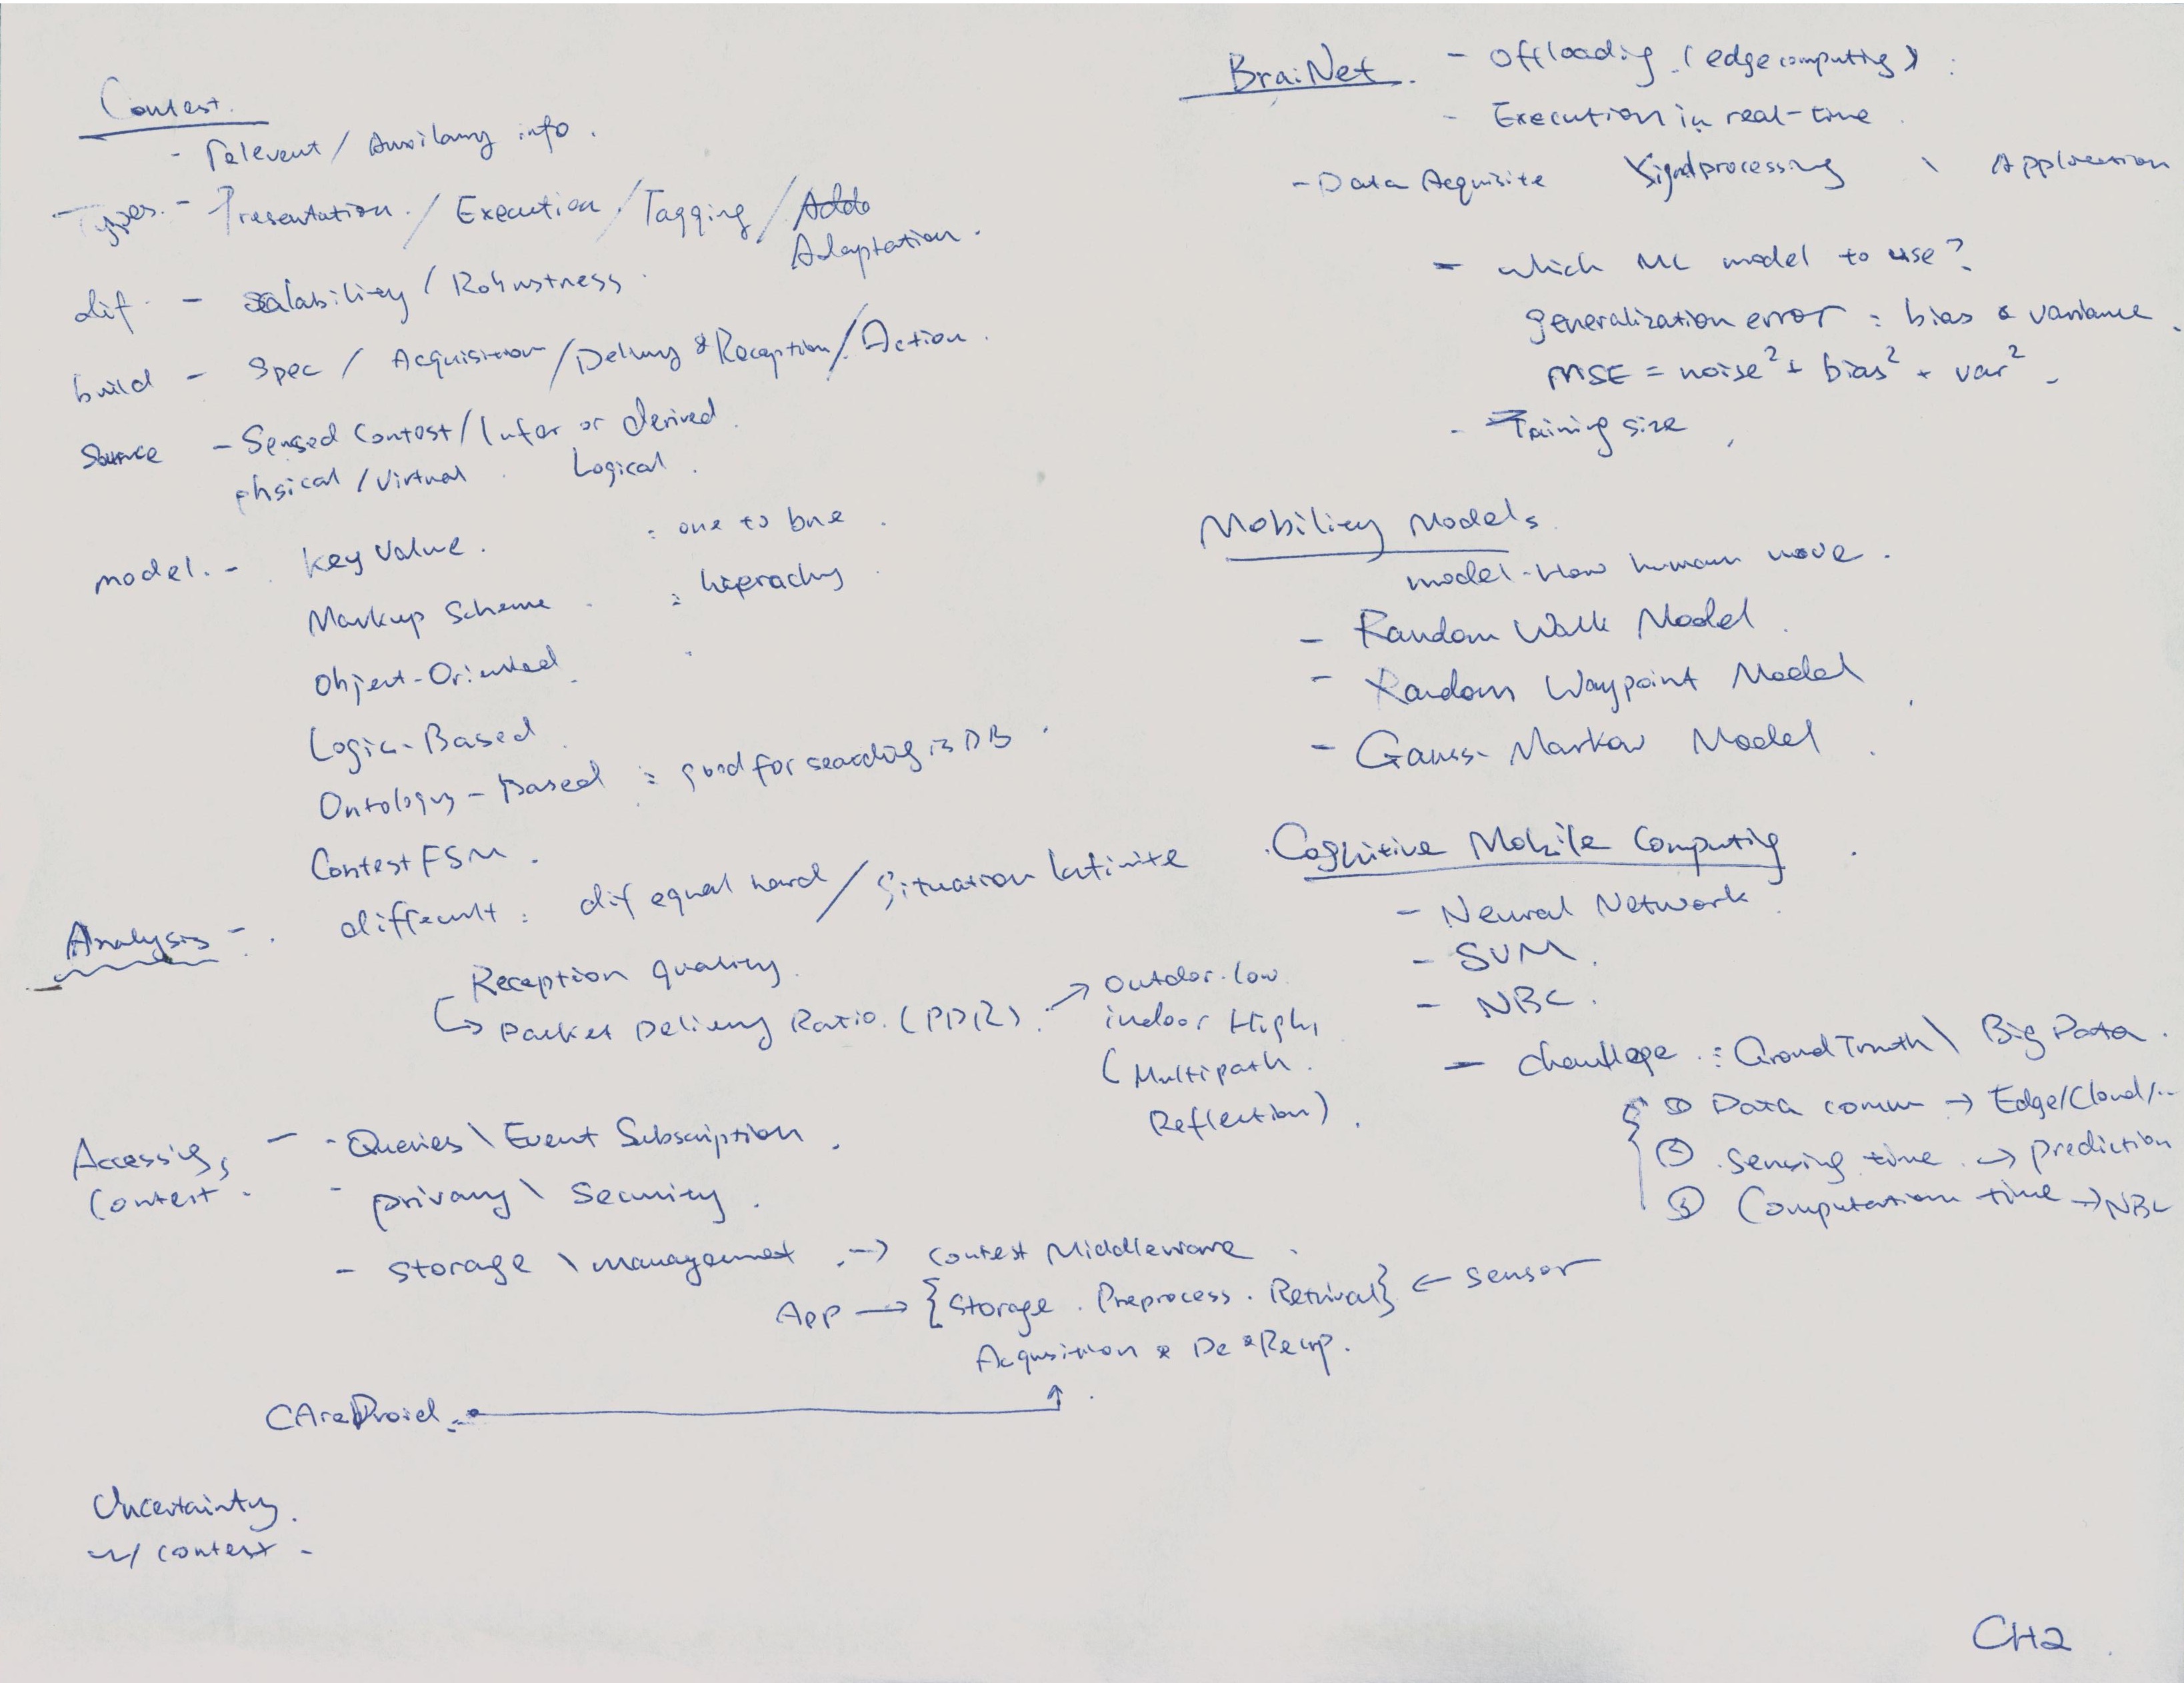 Context.
- relevent / Auxilary info.
Types. - Presentation. / Execution / Tagging / Addo
Adaptation.
dif. - Scalability / Robustness.
build - Spec / Acquisition / Delivery & Reception / Action.
Source - Sensed Contest / Infer or derived.
phsical / virtual. Logical.
model. - key value. : one to bne.
Markup Scheme. : hierachy.
Object-Oriented.
Logic-Based.
Ontology-Based : good for searching in DB.
Contest FSM.
Analysis - . difficult : dif equal hard / Situation Infinite
Reception quality.
↳ Packet Delivery Ratio. (PDR). → Outdor. low
indoor High,
(Multipath.
Reflection).
Accessing, Context. - - Queries \ Event Subscription.
- privacy \ Security.
- Storage \ management. → Contest Middleware.
App → {Storage. Preprocess. Retrival} ← Sensor
Acqusition & De & Recep.
CAreDroid.
Uncertainty.
w/ context -
BraiNet. - Offloading. (edge computing) :
- Execution in real-time.
- Data Acquisite \ Signal processing \ Application
- which ML model to use?
generalization error = bias & variance.
MSE = noise² + bias² + var².
- Training size,
Mobility Models.
model - How human move.
- Random Walk Model.
- Random Waypoint Model.
- Gauss-Markov Model.
Cognitive Mobile Computing.
- Neural Network.
- SVM.
- NBC.
- Challege : Groud Truth \ Big Data.
① Data comm → Edge/Cloud/..
② Sensing time. → prediction
③ Computation time → NBC
CH2.